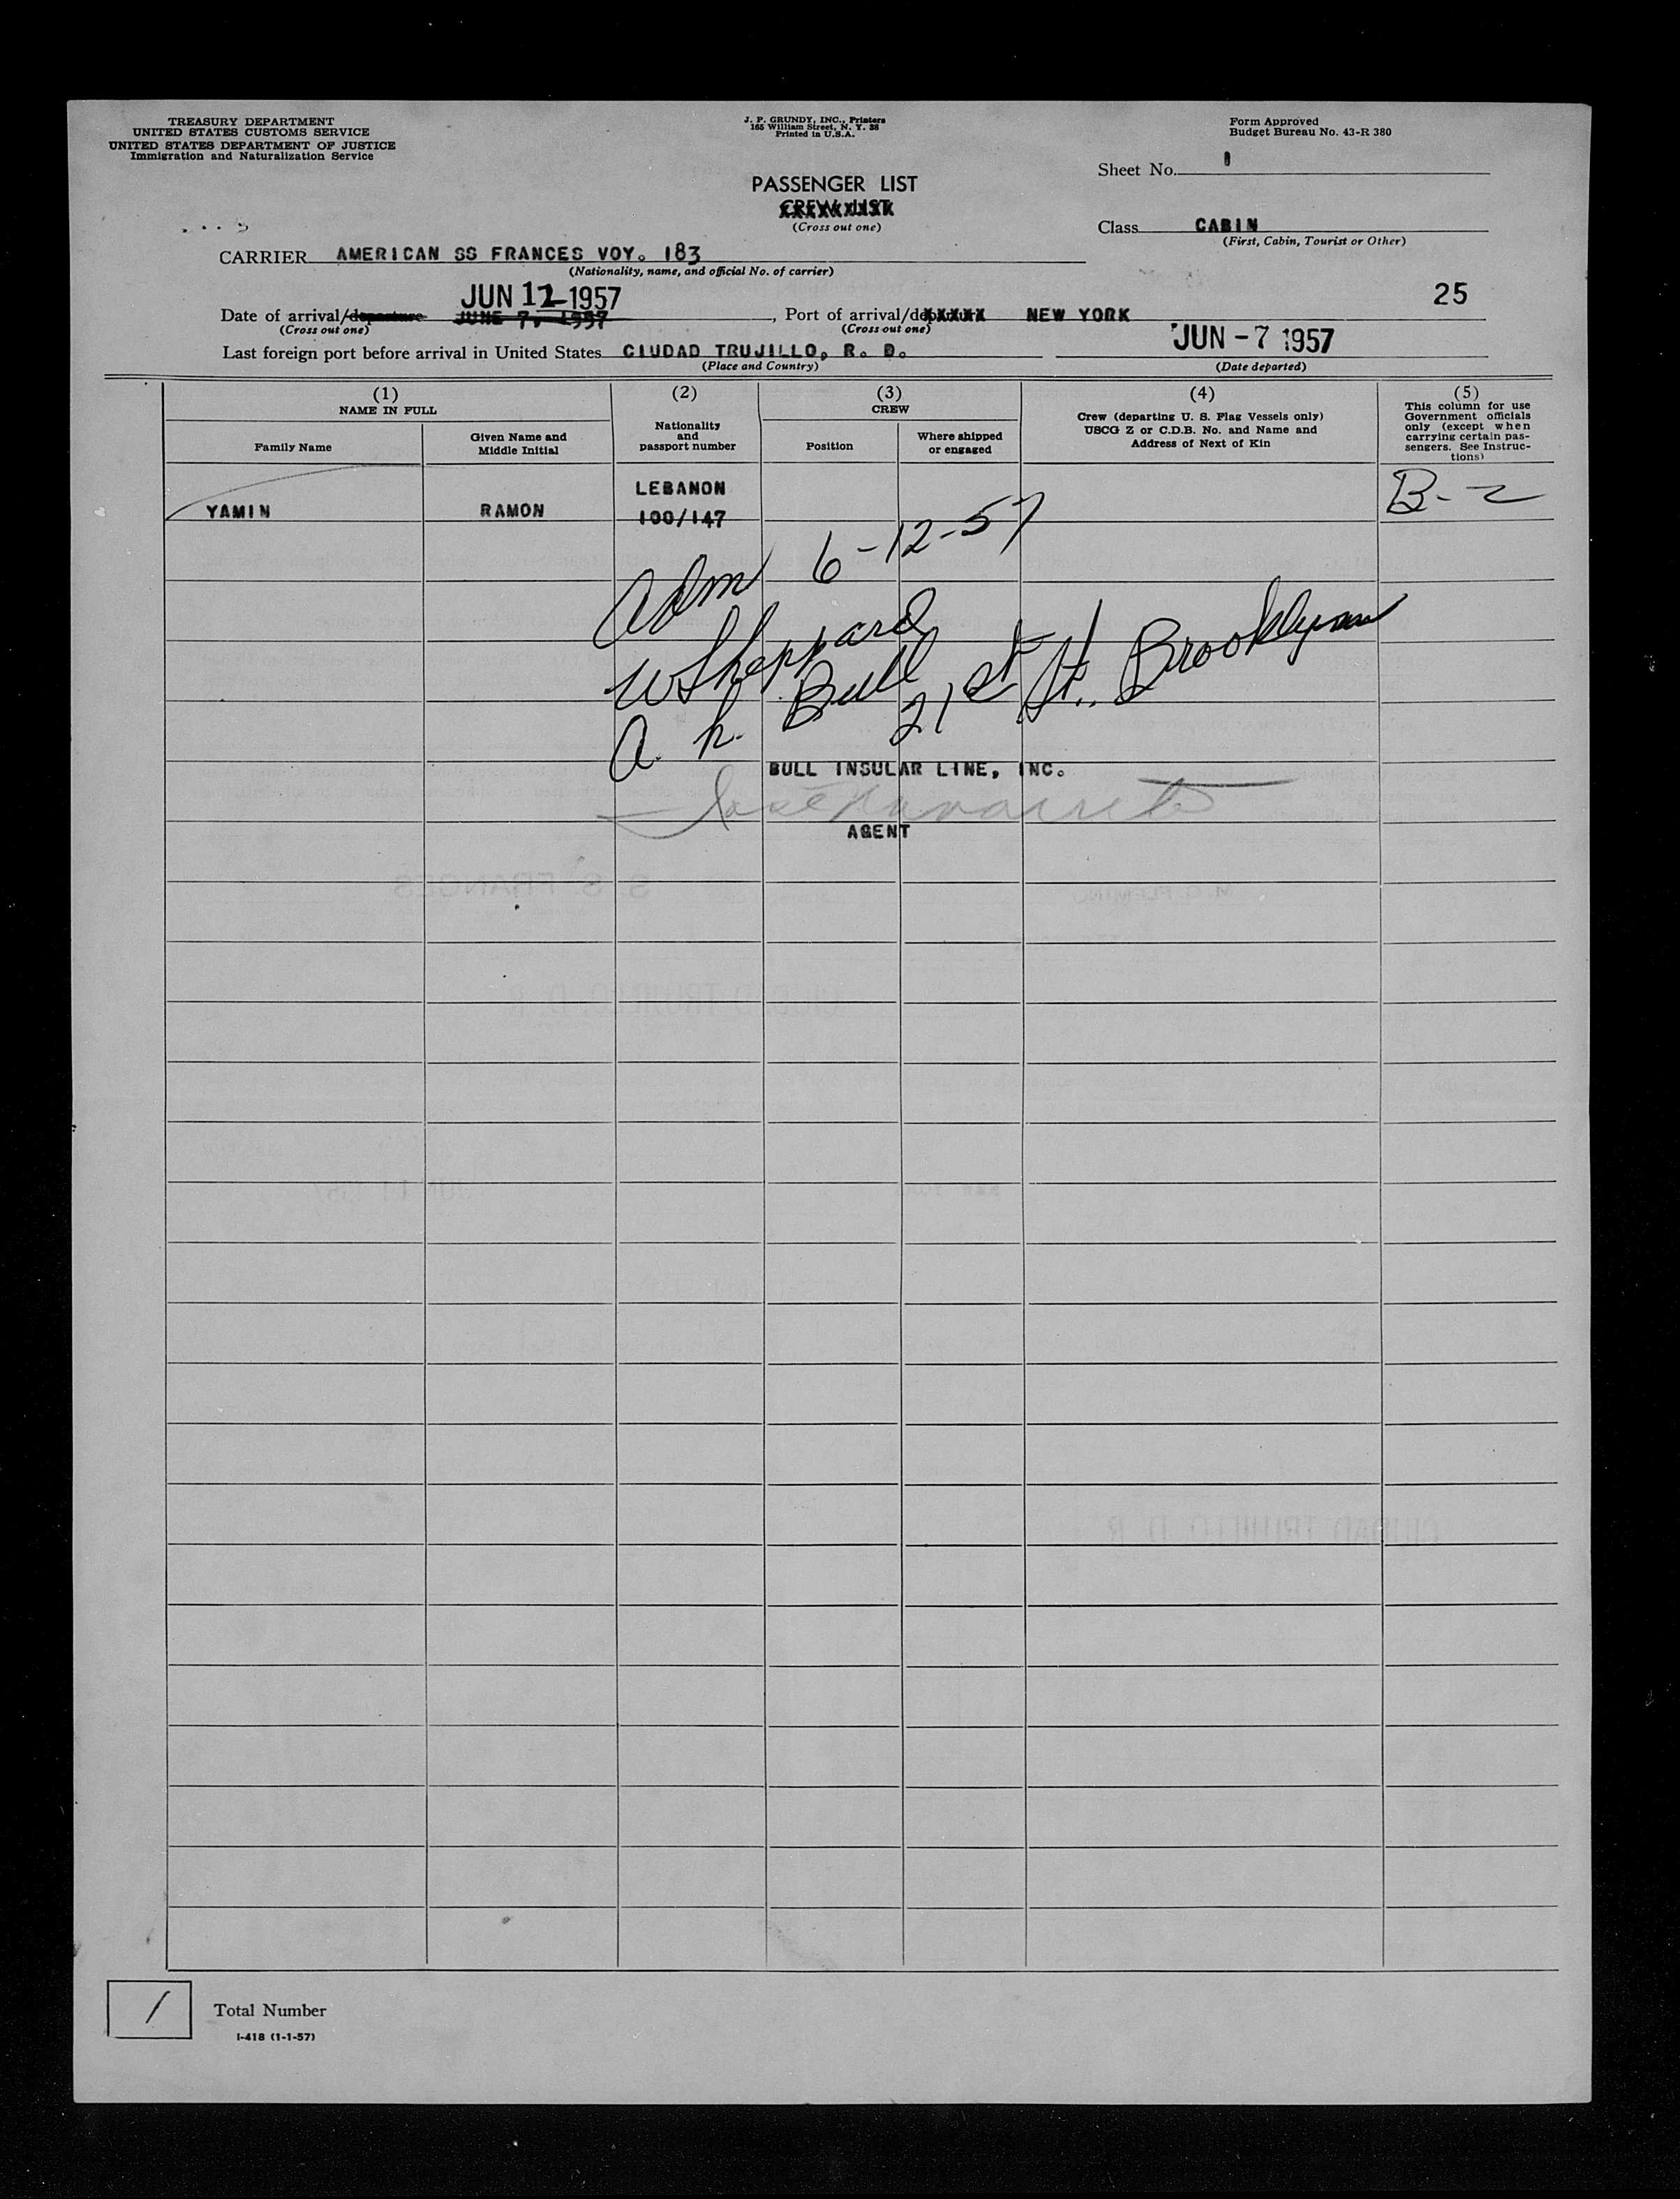 TREASURY DEPARTMENT
UNITED STATES CUSTOMS SERVICE
UNITED STATES DEPARTMENT OF JUSTICE
Immigration and Naturalization Service
J. P. GRUNDY, INC., Printers
165 William Street, N. Y. 38
Printed in U.S.A.
Form Approved
Budget Bureau No. 43-R 380
Sheet No. 1
PASSENGER LIST
CREW LIST
(Cross out one)
Class CABIN
(First, Cabin, Tourist or Other)
CARRIER AMERICAN SS FRANCES VOY. 183
(Nationality, name, and official No. of carrier)
JUN 12 1957
25
Date of arrival/departure JUNE 7, 1957, Port of arrival/departure NEW YORK
(Cross out one) (Cross out one)
JUN -7 1957
Last foreign port before arrival in United States CIUDAD TRUJILLO, R. D.
(Place and Country) (Date departed)
(1) (2) (3) (4) (5)
NAME IN FULL
Family Name
Given Name and
Middle Initial
Nationality
and
passport number
CREW
Position
Where shipped
or engaged
Crew (departing U. S. Flag Vessels only)
USCG Z or C.D.B. No. and Name and
Address of Next of Kin
This column for use
Government officials
only (except when
carrying certain pas-
sengers. See Instruc-
tions)
LEBANON
YAMIN RAMON 100/147 B-2
Adm 6-12-57
W Sheppard
A. H. Bull 21st St. Brooklyn
BULL INSULAR LINE, INC.
AGENT
S. S. FRANCES
CIUDAD TRUJILLO, D. R.
JUN 11 1957
NEW YORK
CIUDAD TRUJILLO, D. R.
1 Total Number
I-418 (1-1-57)